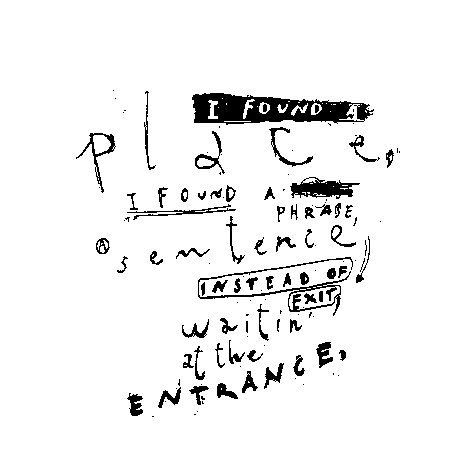 I FOUND A
place,
I FOUND A
PHRASE,
Ⓐ sentence
INSTEAD OF
EXIT,
waitin'
at the
ENTRANCE,